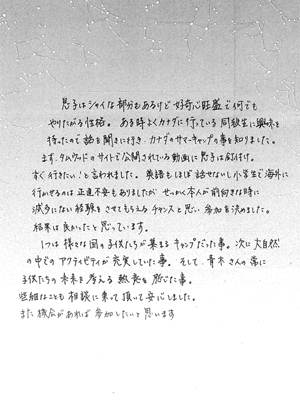 息子はシャイな部分もあるけど好奇心旺盛で何でも
やりたがる性格。ある時よくカナダに行っている同級生に興味を
持ったので話を聞きに行き、カナダのサマーキャンプの事を知りました。
まず、タムウッドのサイトで公開されている動画に息子は釘付け。
すぐ行きたい！と言われました。英語もほぼ話せないし小学生で海外に
行かせるのは正直不安もありましたが、せっかく本人が前向きな時に
滅多にない経験をさせてもらえるチャンスと思い参加を決めました。
結果は良かったと思っています。
1つは様々な国の子供たちが集まるキャンプだった事。次に大自然
の中でのアクティビティが充実していた事。そして、青木さんの常に
子供たちの未来を考える熱意を感じた事。
些細なことも相談に乗って頂いて安心しました。
また機会があれば参加したいと思います